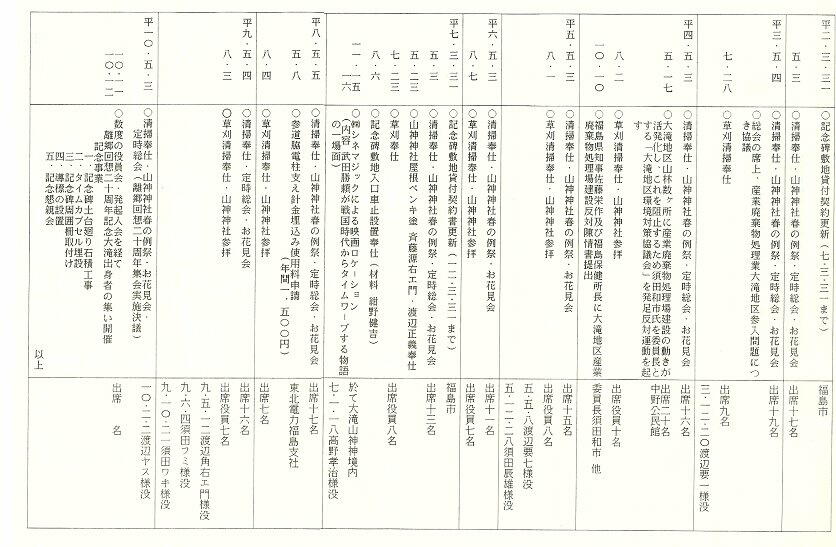 平二・三・三一
○記念碑敷地貸付契約更新(七・三・三一まで)
福島市
五・三
○清掃奉仕・山神神社春の例祭・お花見会
出席十七名
平三・五・四
○清掃奉仕・山神神社春の例祭・定時総会・お花見会
出席十九名
○総会の席上、産業廃棄物処理業大滝地区参入問題につ
き協議
七・二八
○草刈清掃奉仕
出席九名
三・一二・二〇渡辺要一様没
平四・五・三
○清掃奉仕・山神神社春の例祭・定時総会・お花見会
出席十六名
五・一七
○大滝地区山林数ヶ所に産業廃棄物処理場建設の動きが
活発化しこれを阻止するため須田和市氏を委員長と
する「大滝地区環境対策協議会」を発足反対運動を起
す
出席二十名
中野公民館
八・二
○草刈清掃奉仕・山神神社参拝
出席役員十名
一〇・一〇
○福島県知事佐藤栄作及び福島保健所長に大滝地区産業
廃棄物処理場建設反対陳情書提出
委員長須田和市 他
平五・五・三
○清掃奉仕・山神神社春の例祭・定時総会・お花見会
出席十五名
八・一
○草刈清掃奉仕・山神神社参拝
出席役員八名
五・五・八渡辺要七様没
五・一二・二八須田辰雄様没
平六・五・三
○清掃奉仕・山神神社春の例祭・お花見会
出席十一名
八・七
○草刈清掃奉仕・山神神社参拝
出席役員七名
平七・三・三一
○記念碑敷地貸付契約書更新(一二・三・三一まで)
福島市
五・三
○清掃奉仕・山神神社春の例祭・定時総会・お花見会
出席十三名
五・二三
○山神神社屋根ペンキ塗 斉藤源右エ門・渡辺正義奉仕
七・二三
○草刈奉仕
出席役員八名
八・六
○記念碑敷地入口車止設置奉仕(材料 紺野健吉)
一一・一五
一六
○㈱シネマジックによる映画ロケーション
(内容 武田勝頼が戦国時代からタイムワープする物語
の一場面)
於て大滝山神神社境内
七・一・一八高野孝治様没
平八・五・五
○清掃奉仕・山神神社春の例祭・定時総会・お花見会
出席十七名
五・八
参道脇電柱支え針金埋込み使用料申請
(年間一、五〇〇円)
東北電力福島支社
八・四
○草刈清掃奉仕・山神神社参拝
出席七名
平九・五・四
○清掃奉仕・定時総会・お花見会
出席十六名
八・三
○草刈清掃奉仕・山神神社参拝
出席役員七名
九・五・一二渡辺角右エ門様没
九・六・四須田フミ様没
九・一〇・二一須田ワキ様没
平一〇・五・三
○清掃奉仕・山神神社春の例祭・お花見会・
定時総会(離郷回想二十周年集会実施決議)
一〇・二・二渡辺ヤス様没
一〇・一一
一〇・一二
○数度の役員会・発起人会を経て
離郷回想二十周年記念大滝出身者の集い開催
出席 名
記念事業
一、記念碑土台廻り石積工事
二、タイムカプセル埋設
三、記念碑周囲柵取付け
四、導標の設置
五、記念懇親会
以上